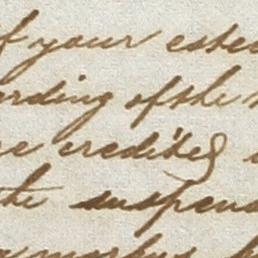 f your estee
ording of the
re credited
the suspens